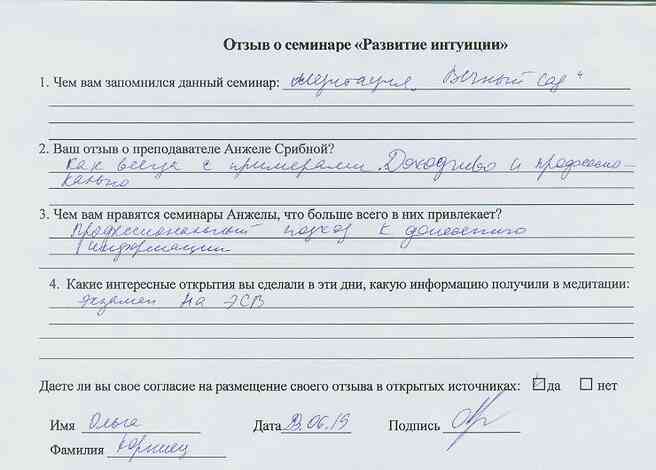 Отзыв о семинаре «Развитие интуиции»
1. Чем вам запомнился данный семинар: медитация „Вечный сад“
2. Ваш отзыв о преподавателе Анжеле Срибной?
Как всегда с примерами. Доходчиво и професио-
нально
3. Чем вам нравятся семинары Анжелы, что больше всего в них привлекает?
Професиональный подход к донесению
информации
4. Какие интересные открытия вы сделали в эти дни, какую информацию получили в медитации:
экзамен на ЭСВ
Даете ли вы свое согласие на размещение своего отзыва в открытых источниках: да нет
Имя Ольга Дата .06.19 Подпись
Фамилия